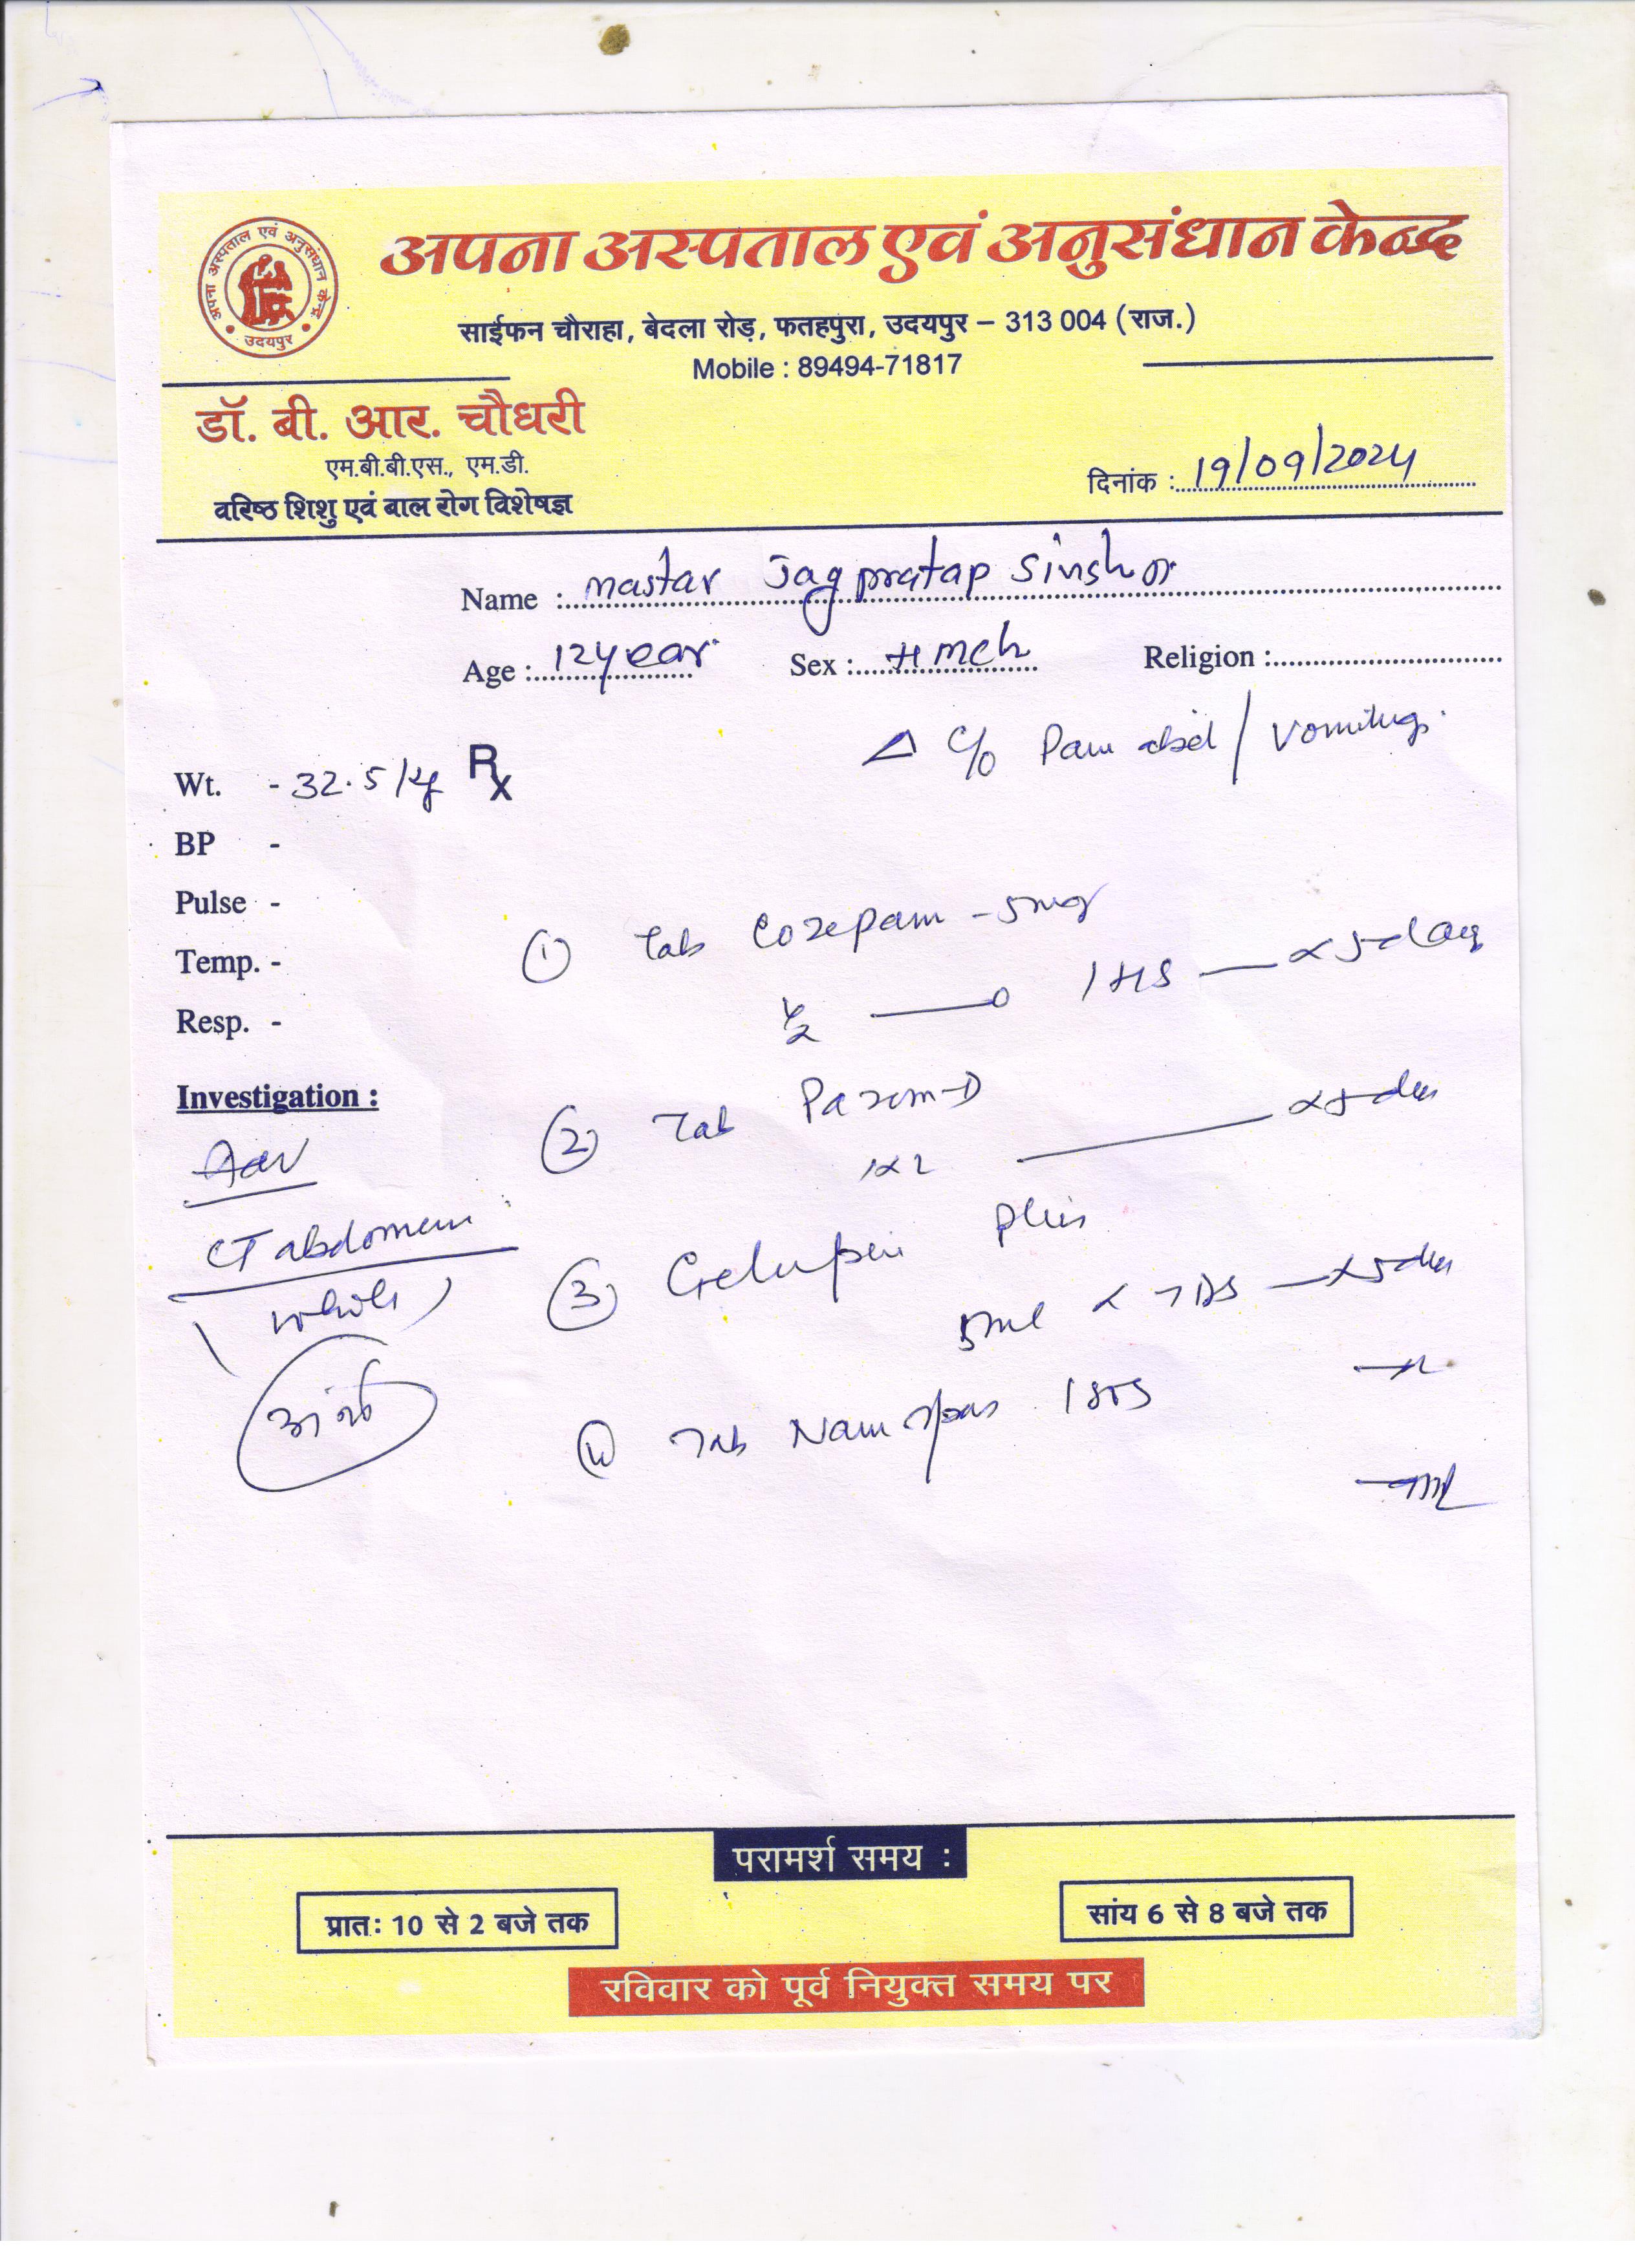 अपना अस्पताल एवं अनुसंधान केन्द्र
अपना अस्पताल एवं अनुसंधान केन्द्र
उदयपुर
साईफन चौराहा, बेदला रोड़, फतहपुरा, उदयपुर – 313 004 (राज.)
Mobile : 89494-71817
डॉ. बी. आर. चौधरी
एम.बी.बी.एस., एम.डी.
वरिष्ठ शिशु एवं बाल रोग विशेषज्ञ
दिनांक : 19/09/2024
Name : mastar Jagpratap
Age : 12 year Sex : Religion :
Δ C/o Pain abd / vomiting
Wt. - 32.5 kg Rx
BP -
Pulse -
Temp. -
Resp. -
① Tab - 5mg
½ — 0 1 HS — x 5 day
Investigation :
Adv
② Tab
CT abdomen
(whole)
③ plus
5ml x TDS — x 5 day
④ Tab 1 SOS
परामर्श समय :
प्रातः 10 से 2 बजे तक
सांय 6 से 8 बजे तक
रविवार को पूर्व नियुक्त समय पर